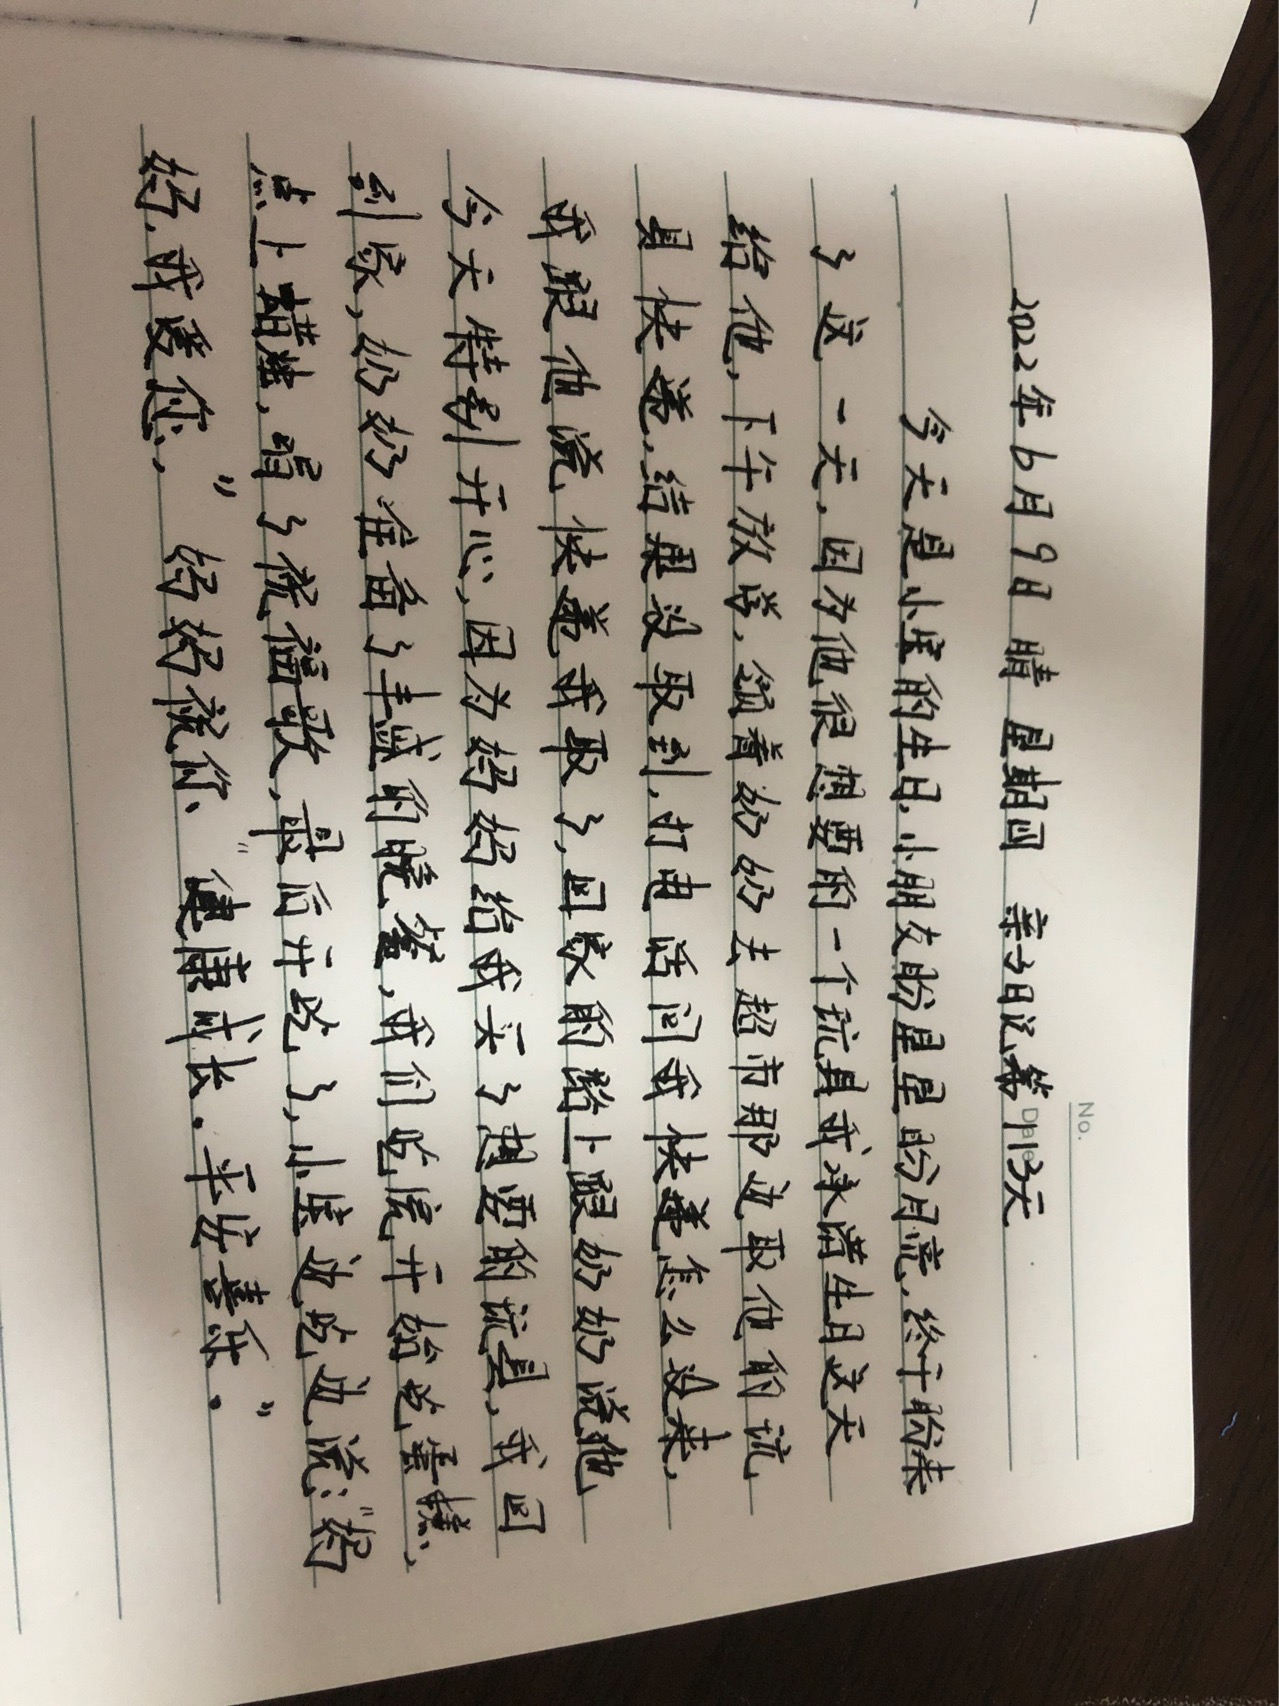 No.
Date
2022年6月9日 晴 星期四 亲子日记第113天
今天是小宝的生日,小朋友盼星星盼月亮,终于盼来
了这一天,因为他很想要的一个玩具我承诺生日这天
给他,下午放学,领着奶奶去超市那边取他的玩
具快递,结果没取到,打电话问我快递怎么没来,
我跟他说,快递我取了,回家的路上跟奶奶说他
今天特别开心,因为妈妈给我买了想要的玩具,我回
到家,奶奶准备了丰盛的晚餐,我们吃完开始吃蛋糕、
点上蜡烛,唱了祝福歌,最后开吃了,小宝边吃边说:“妈
妈,我爱您,” 妈妈祝你、“健康成长.平安喜乐.”